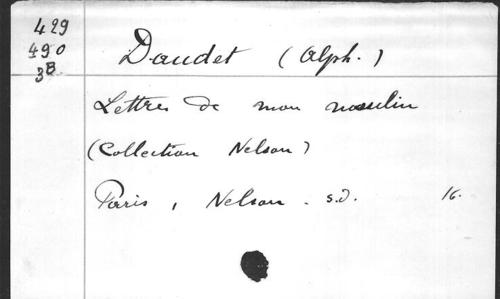 429
490
3B
Daudet (Alph.)
Lettres de mon moulin
(Collection Nelson)
Paris, Nelson. s.d. 16.